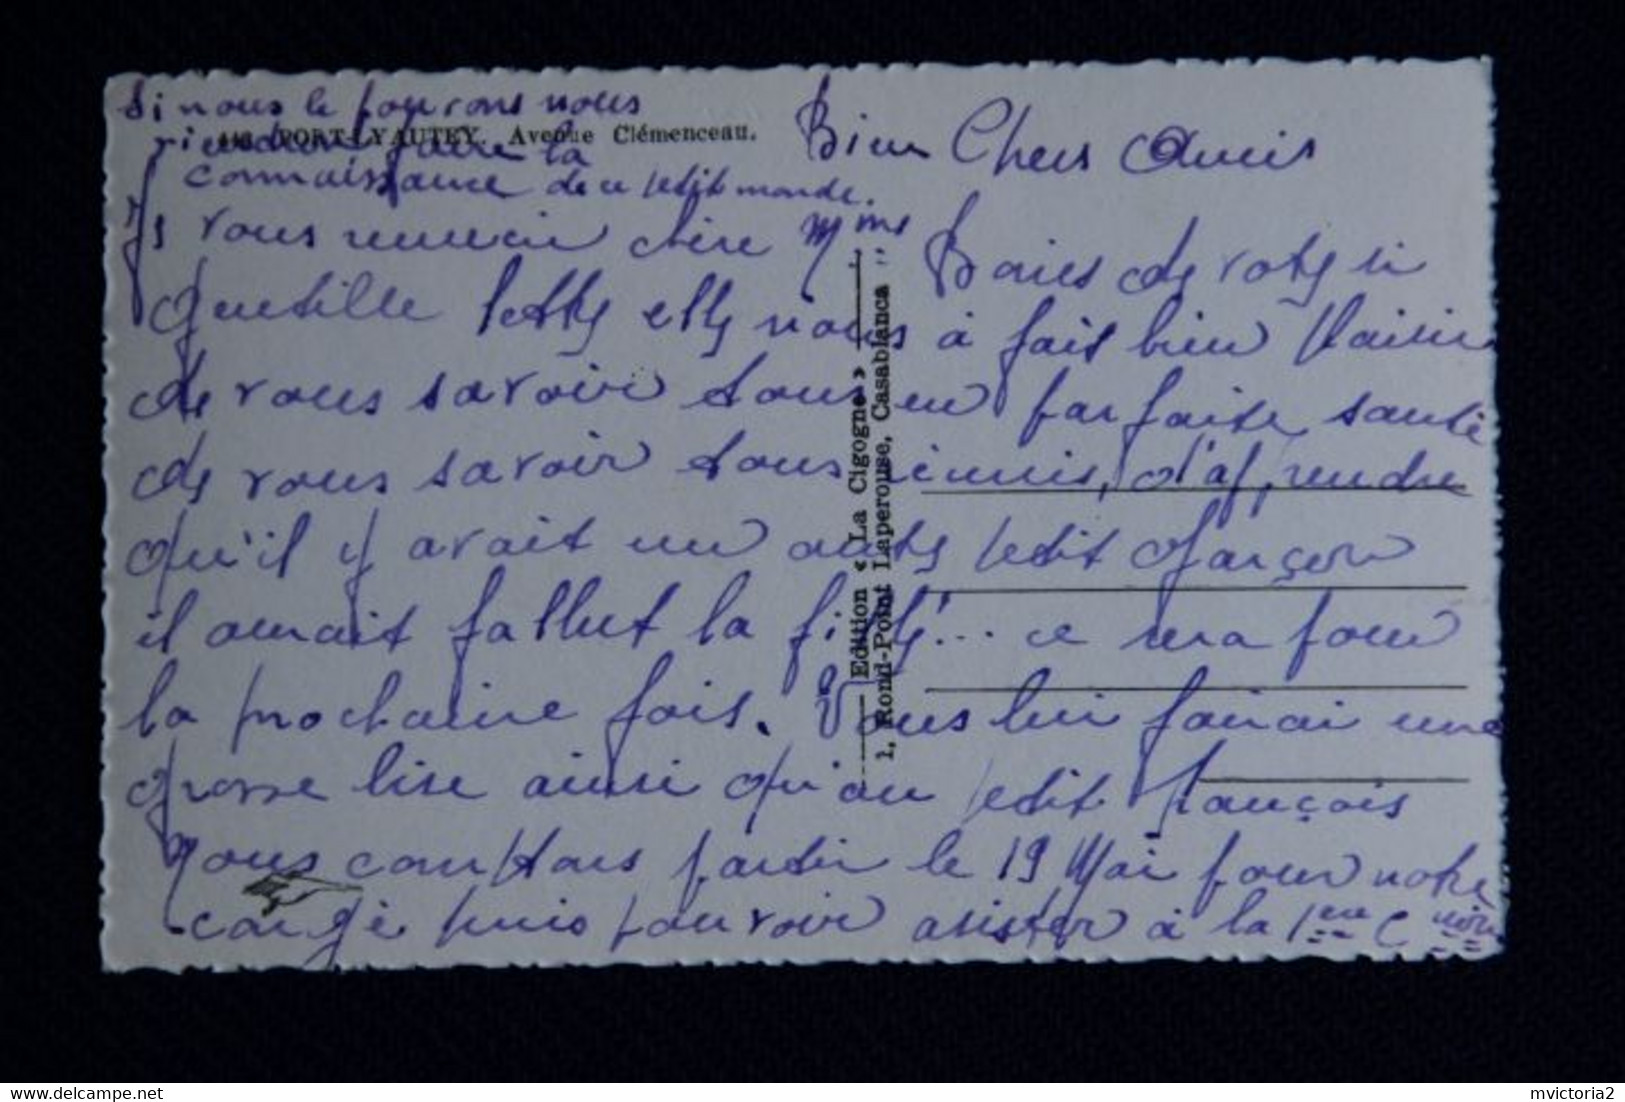 Si nous le pouvons nous
viendrons faire la
connaissance de ce petit monde.
446. PORT-LYAUTEY. Avenue Clémenceau.
Bien Chers Amis
Je vous remercie chère Mme Baies de votre si
gentille lettre elle nous à fait bien plaisir
de vous savoir tous en parfaite santé
de vous savoir tous réunis, d'apprendre
qu'il y avait un autre petit garçon
il aurait fallut la fille!... ce sera pour
la prochaine fois. Vous lui fairai une
grosse bise ainsi qu'au petit françois
Nous comptons partir le 19 Mai pour notre
congé puis pouvoir assister à la 1ere C nion
Edition « La Cigogne »
1, Rond-Point Laperouse, Casablanca
mvictoria2